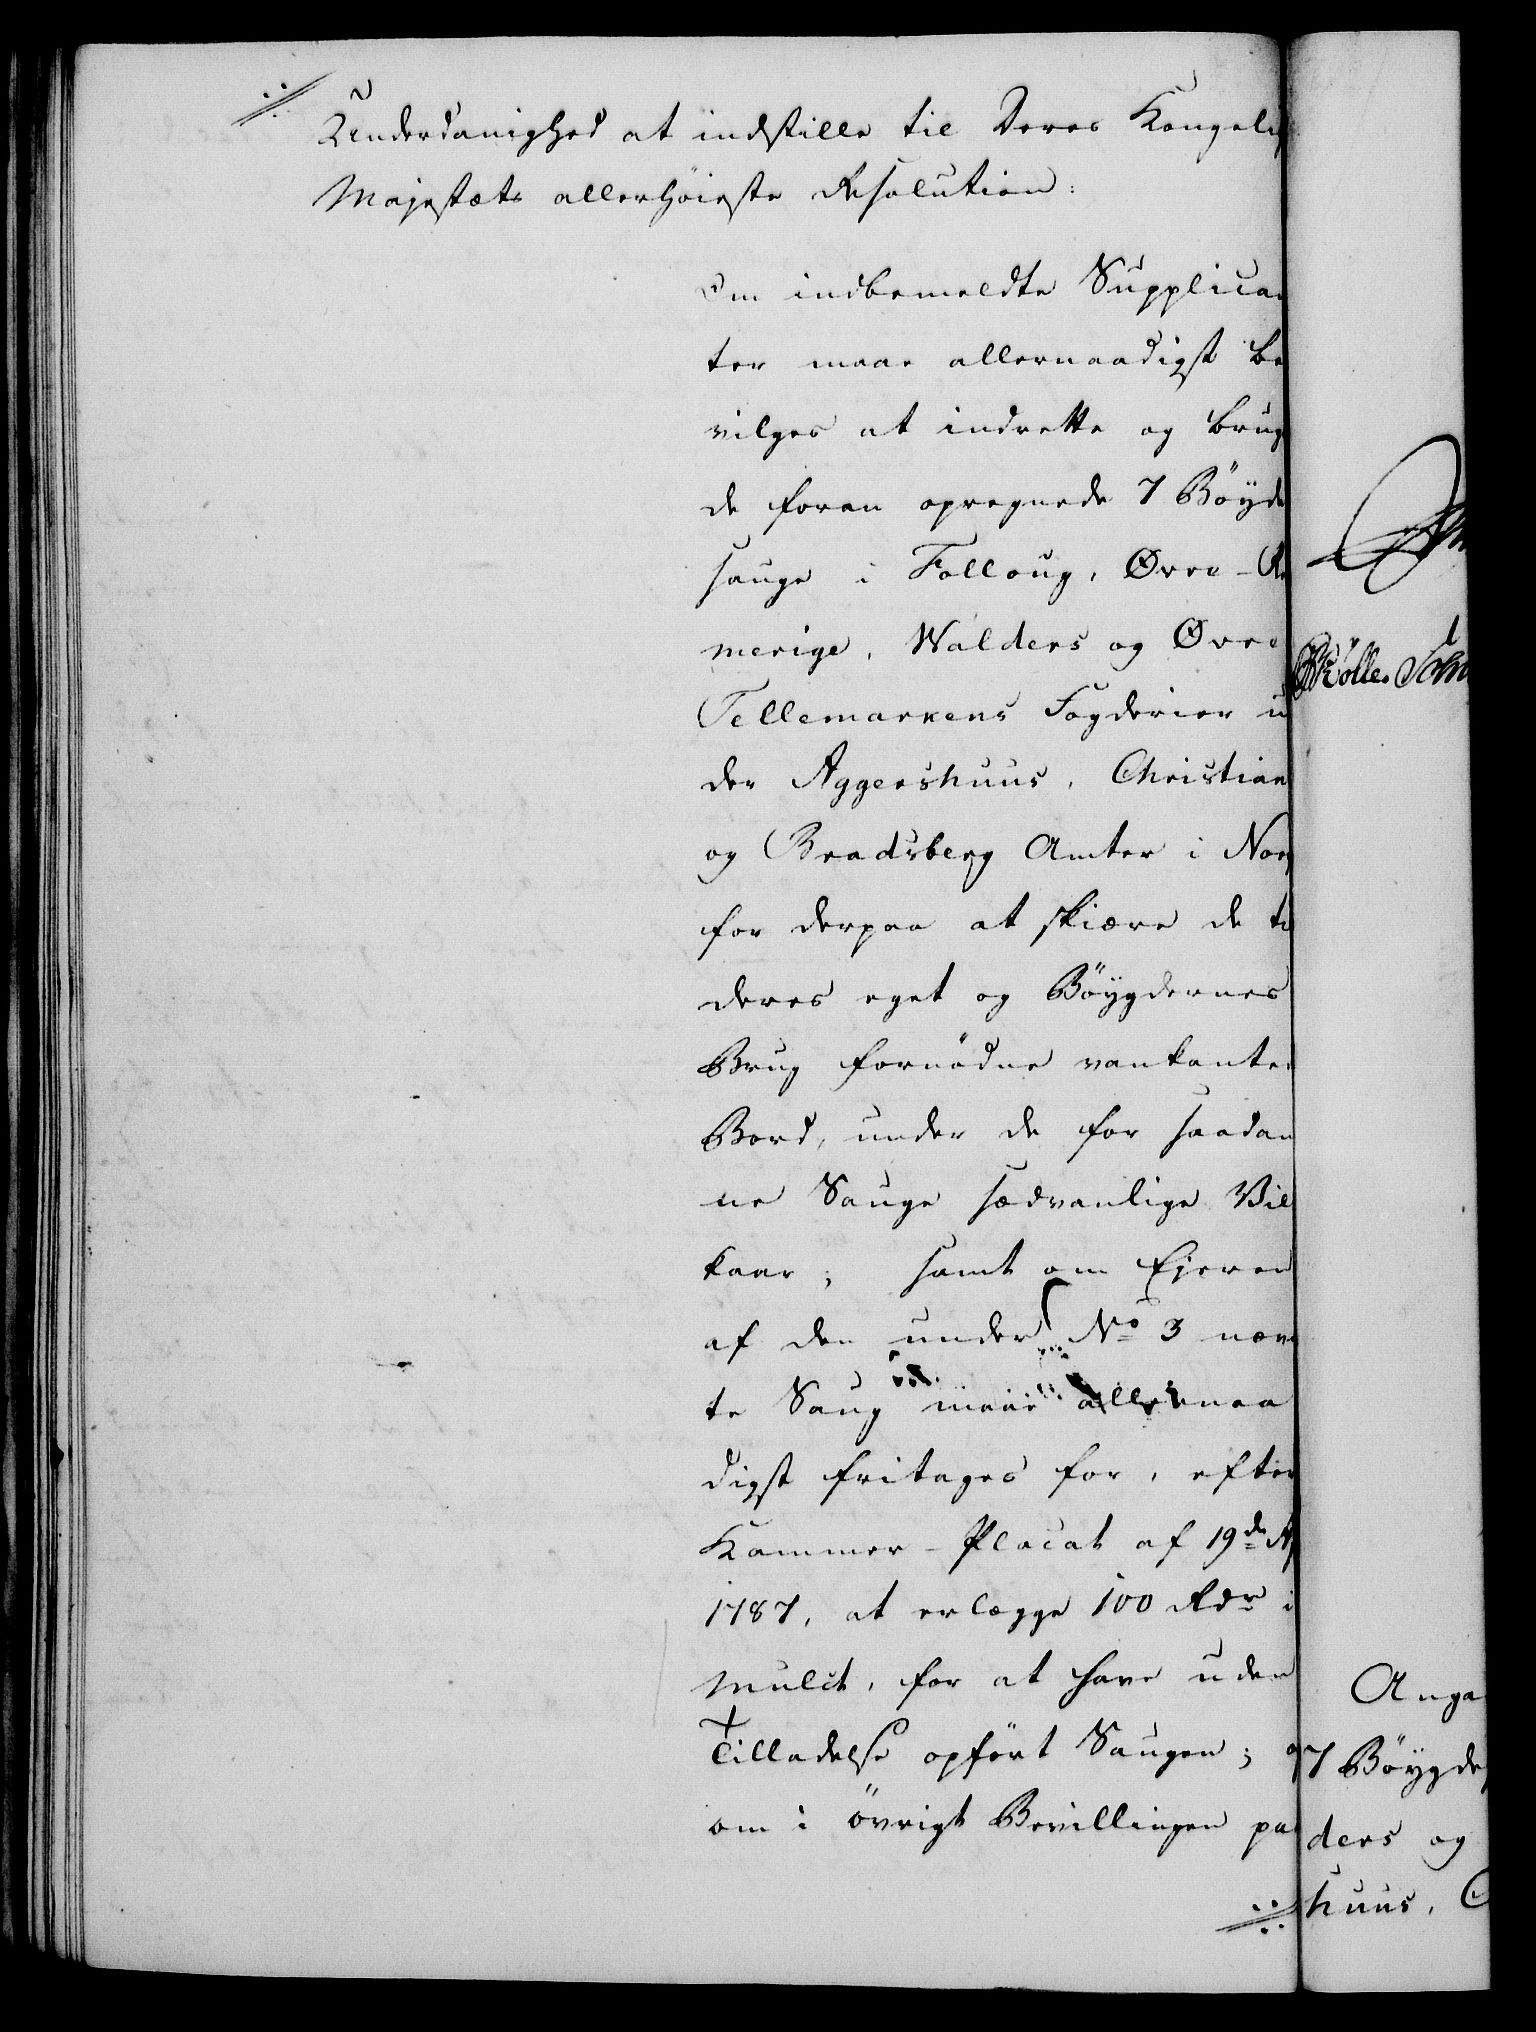 Underdanighed at indstille til Deres Kongeli
Majestæts allerhöieste Resolution:
Om indbemeldte Supplican
ter maae allernaadigst be
vilges at indrette og brug
de foran opregnede 7 Böyde
sauge i Folloug, Øvre-Ro
merige, Walders og Øvre
Tellemarkens Fogderier u
der Aggershuus, Christian
og Bradsberg Amter i Norg
for derpaa at skiære de ti
deres eget og Böygdernes
Brug fornödne vankantes
Bord, under de for saadan
ne Sauge sædvanlige Vil
kaar; samt om Ejeren
af den under No 3 næv
te Saug maae allernaa
digst fritages for, efter
Kammer-Placat af 19de Ap
1787, at erlægge 100 Rdr i
Mulct, for at have uden
Tilladelse opfört Saugen; og
om i övrigt Bevillingen paa
Anga
7 Böygde
ders og
huus, C